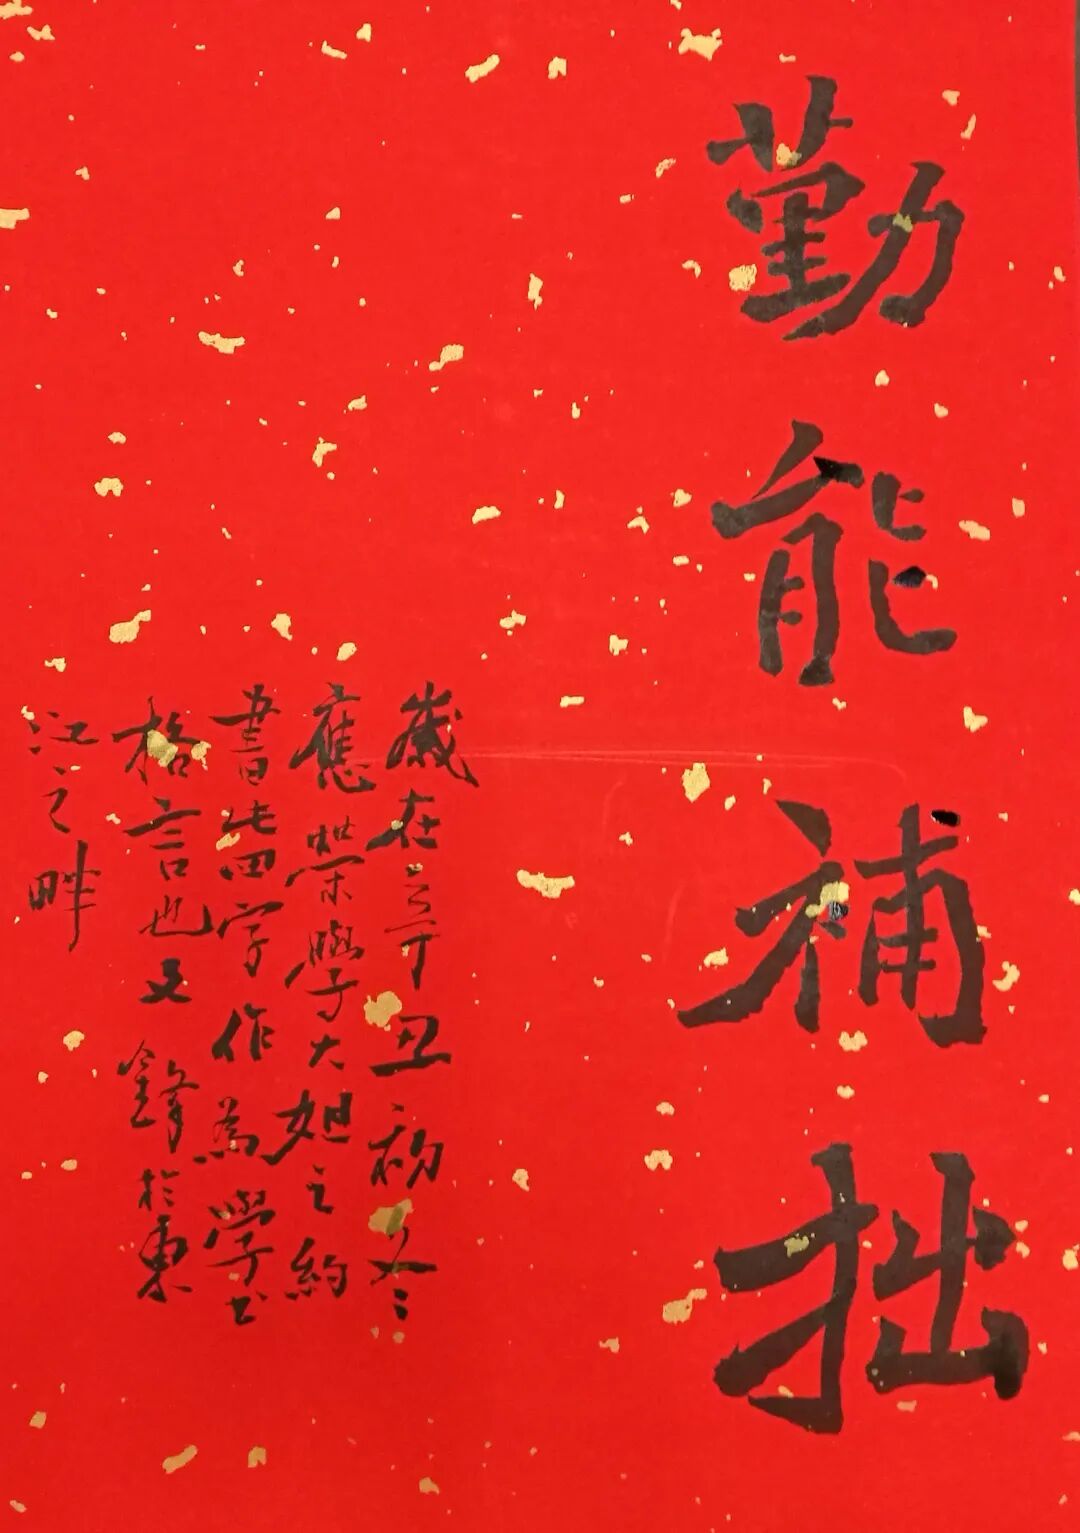 勤能補拙
歲在辛丑初冬
應榮學大姐之約
書此四字作為學書
格言也文鋒於東
江之畔